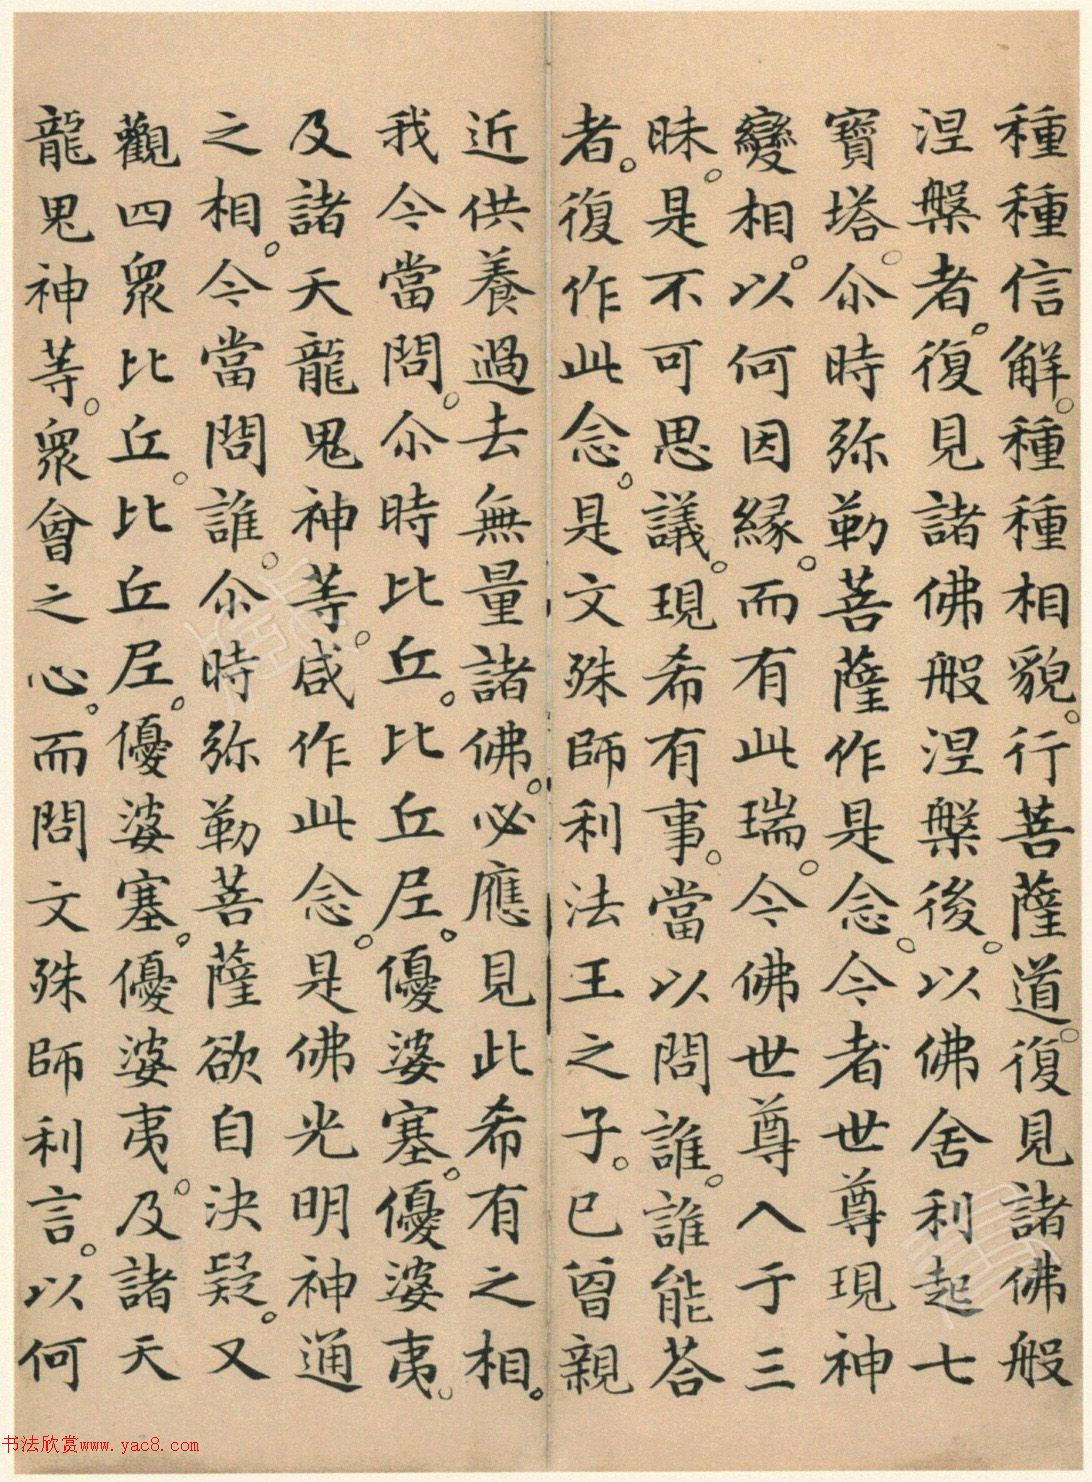 種種信解。種種相貌。行菩薩道。復見諸佛般
涅槃者。復見諸佛般涅槃後。以佛舍利起七
寶塔。尒時弥勒菩薩作是念。今者世尊現神
變相。以何因緣。而有此瑞。今佛世尊入于三
昧。是不可思議。現希有事。當以問誰。誰能荅
者。復作此念。是文殊師利法王之子。已曾親
近供養過去無量諸佛。必應見此希有之相。
我今當問。尒時比丘。比丘尼。優婆塞。優婆夷。
及諸天龍鬼神等。咸作此念。是佛光明神通
之相。今當問誰。尒時弥勒菩薩欲自決疑。又
觀四眾比丘。比丘尼。優婆塞。優婆夷。及諸天
龍鬼神等。眾會之心。而問文殊師利言。以何
书法欣赏www.yac8.com